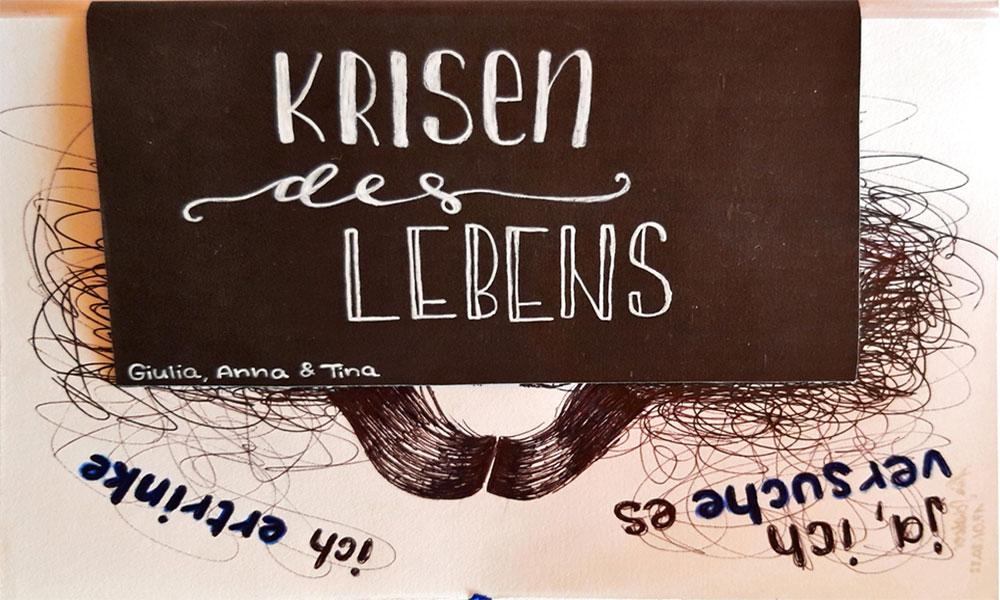 KRISEN
des
LEBENS
Giulia, Anna & Tina
ja, ich
versuche es
ich ertrinke